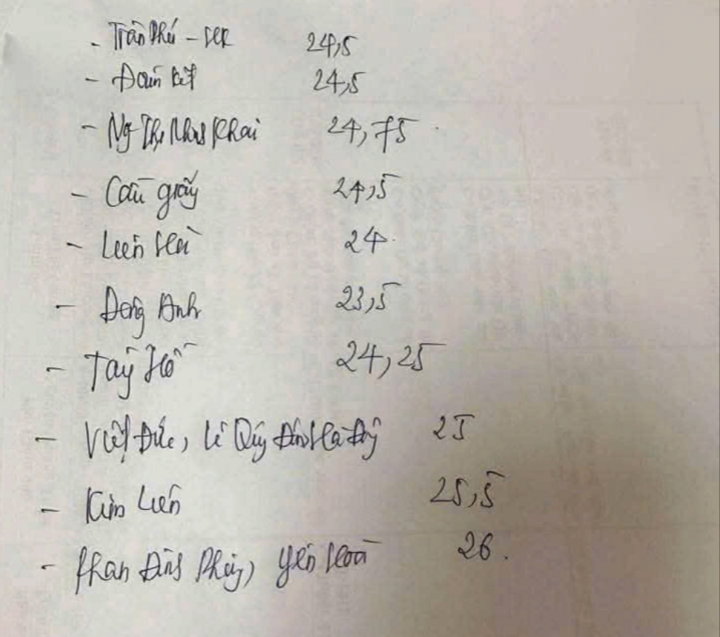 - Trần Phú - HK 24,5
- Đoàn Kết 24,5
- Ng Thị Minh Khai 24,75
- Cầu giấy 24,5
- Liên Hà 24
- Đông Anh 23,5
- Tây Hồ 24,25
- Việt Đức, Lê Quý Đôn Hà Đông 25
- Kim Liên 25,5
- Phan Đình Phùng, Yên Hoà 26.